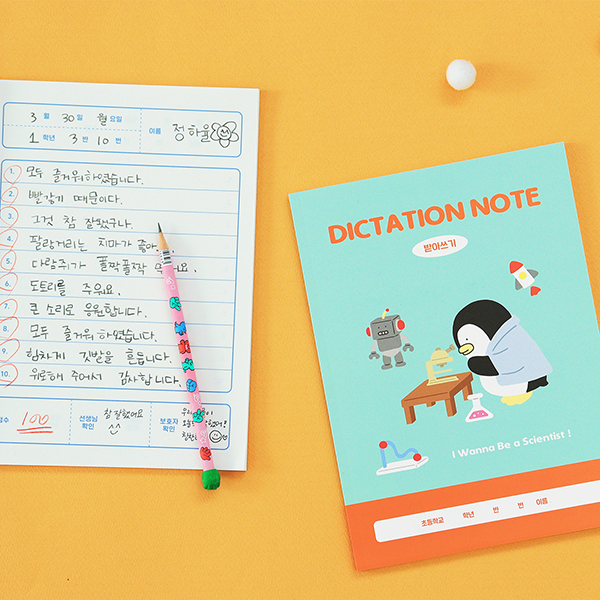 3 월 30 일 월 요일
1 학년 3 반 10 번 이름 정하율
1. 모두 즐거워하였습니다.
2. 빨갛기 때문이다.
3. 그것 참 잘됐구나.
4. 팔랑거리는 치마가 좋아
5. 다람쥐가 폴짝폴짝 요.
6. 도토리를 주워요.
7. 큰 소리로 응원합니다.
8. 모두 즐거워하였습니다.
9. 힘차게 깃발을 흔듭니다.
10. 위로해 주어서 감사합니다.
점수 100 선생님 확인 참 잘했어요 ^^ 보호자 확인
DICTATION NOTE
받아쓰기
I Wanna Be a Scientist !
초등학교 학년 반 번 이름